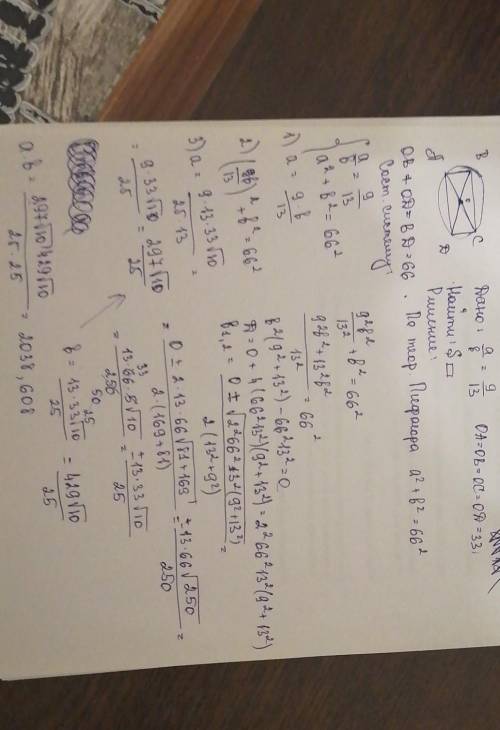 B
C
A
D
Дано: a/b = 9/13 OA=OB=OC=OD=33.
Найти: S□
Решение:
OB + OD = BD = 66. По теор. Пифагора a² + b² = 66²
Сост. систему:
{ a/b = 9/13
a² + b² = 66²
1) a = 9b/13
2) (9b/13)² + b² = 66²
9²b²/13² + b² = 66²
(9²b² + 13²b²)/13² = 66²
b²(9² + 13²) − 66²13² = 0
D = 0 + 4(66²13²)(9² + 13²) = 2²66²13²(9² + 13²)
b1,2 = (0 ± √(2²66²13²(9² + 13²)))/(2(13² + 9²)) =
= (0 ± 2·13·66√(81 + 169))/(2·(169 + 81)) = (±13·66√250)/250 =
= (13·66·5√10)/250 = (±13·33√10)/25
33
25
50
b = (13·33√10)/25 = 429√10/25
3) a = (9·13·33√10)/(25·13) =
= (9·33√10)/25 = 297√10/25
a·b = (297√10·429√10)/(25·25) = 2038,608